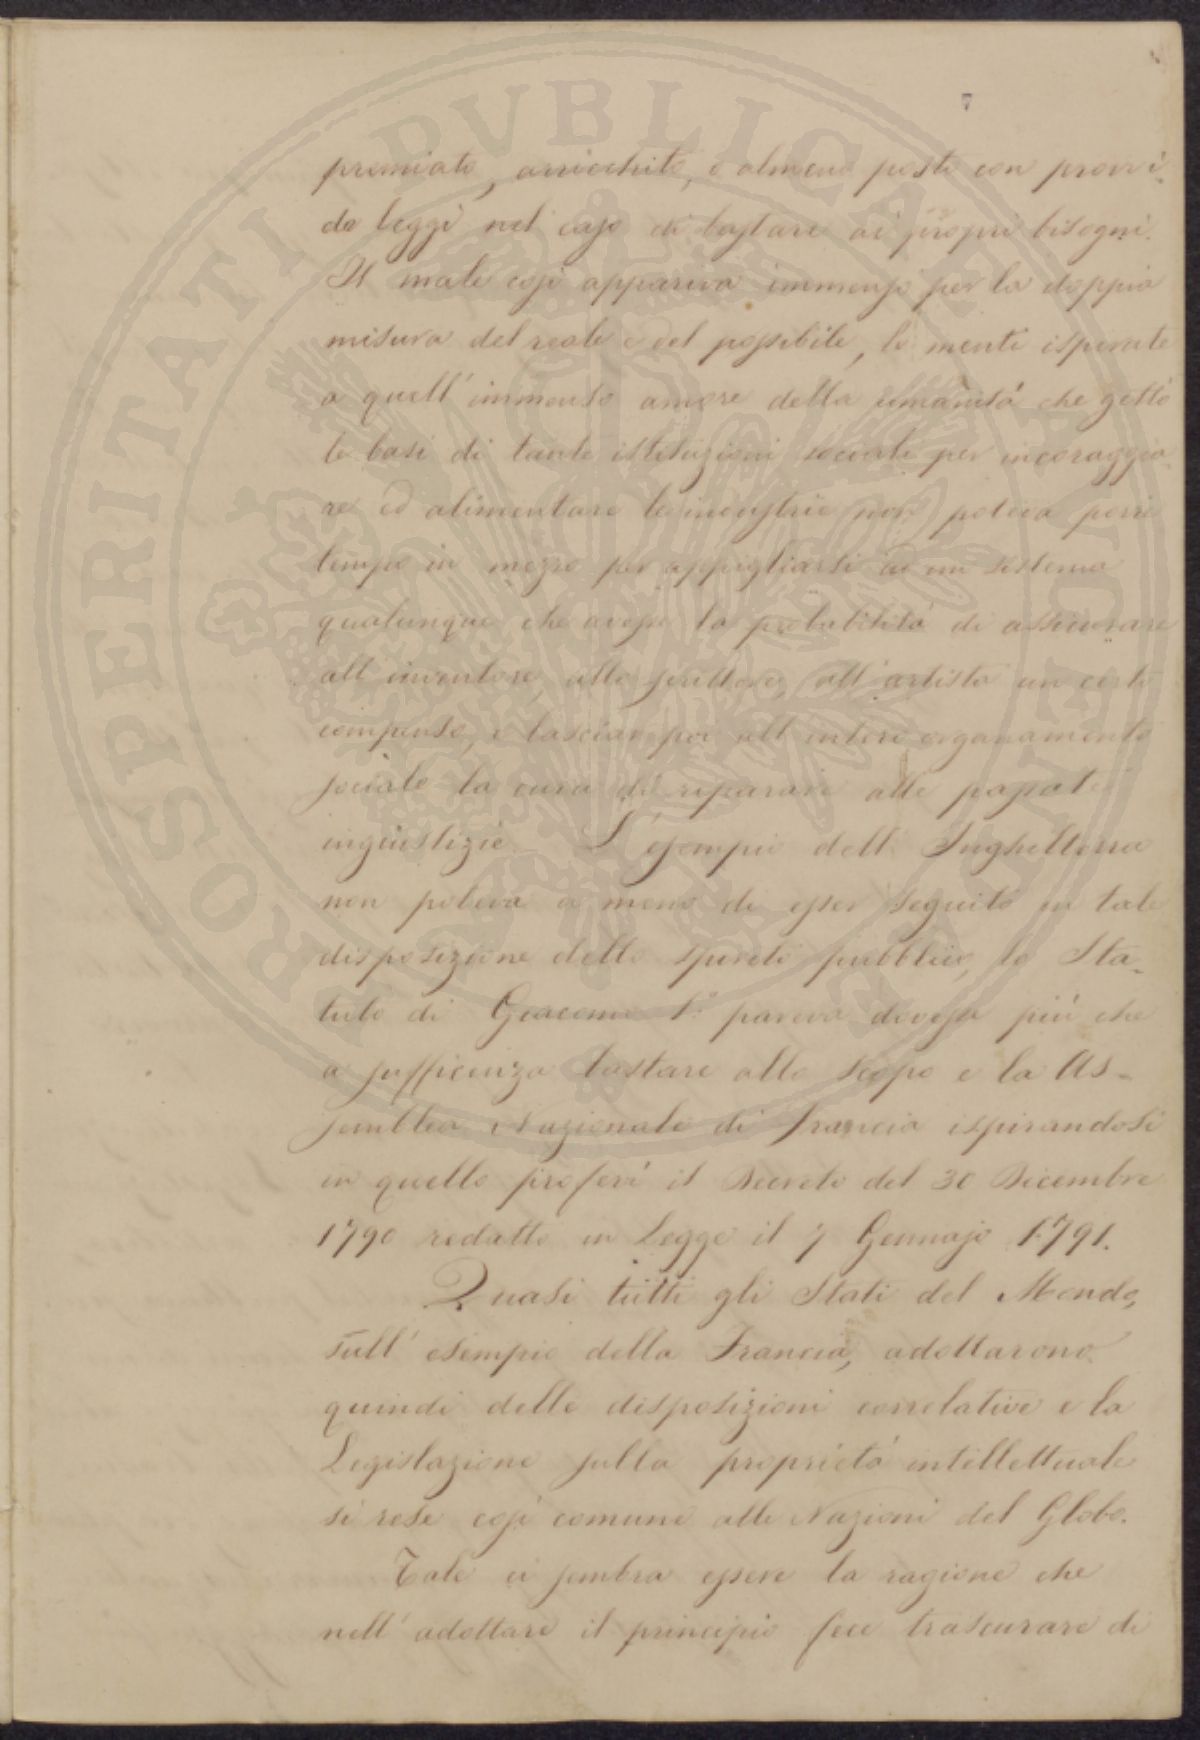 7
premiato, arricchito, o almeno posto con provvi-
de leggi nel caso di bastare ai propri bisogni.
Il male così appariva immenso per la doppia
misura del reale e del possibile, le menti ispirate
a quell' immenso amore della umanità che gettò
le basi di tante istituzioni sociali per incoraggia
re ed alimentare le industrie non poteva porre
tempo in mezzo per appigliarsi ad un sistema
qualunque che avesse la probabilità di assicurare
all' inventore, allo scrittore, all' artista un certo
compenso, e lasciar poi all' intero organamento
sociale la cura di riparare alle passate
ingiustizie. L' esempio dell' Inghilterra
non poteva a meno di esser seguito in tale
disposizione dello spirito pubblico, lo Sta-
tuto di Giacomo I.º pareva dovesse più che
a sufficienza bastare allo scopo e la As-
semblea Nazionale di Francia ispirandosi
in quello proferì il Decreto del 30 Dicembre
1790 redatto in Legge il 7 Gennajo 1791.
Quasi tutti gli Stati del Mondo,
sull' esempio della Francia, adottarono
quindi delle disposizioni correlative e la
Legislazione sulla proprietà intellettuale
si rese così comune alle Nazioni del Globo.
Tale ci sembra essere la ragione che
nell' adottare il principio fece trascurare di
PROSPERITATI PVBLICAE AVGENDAE